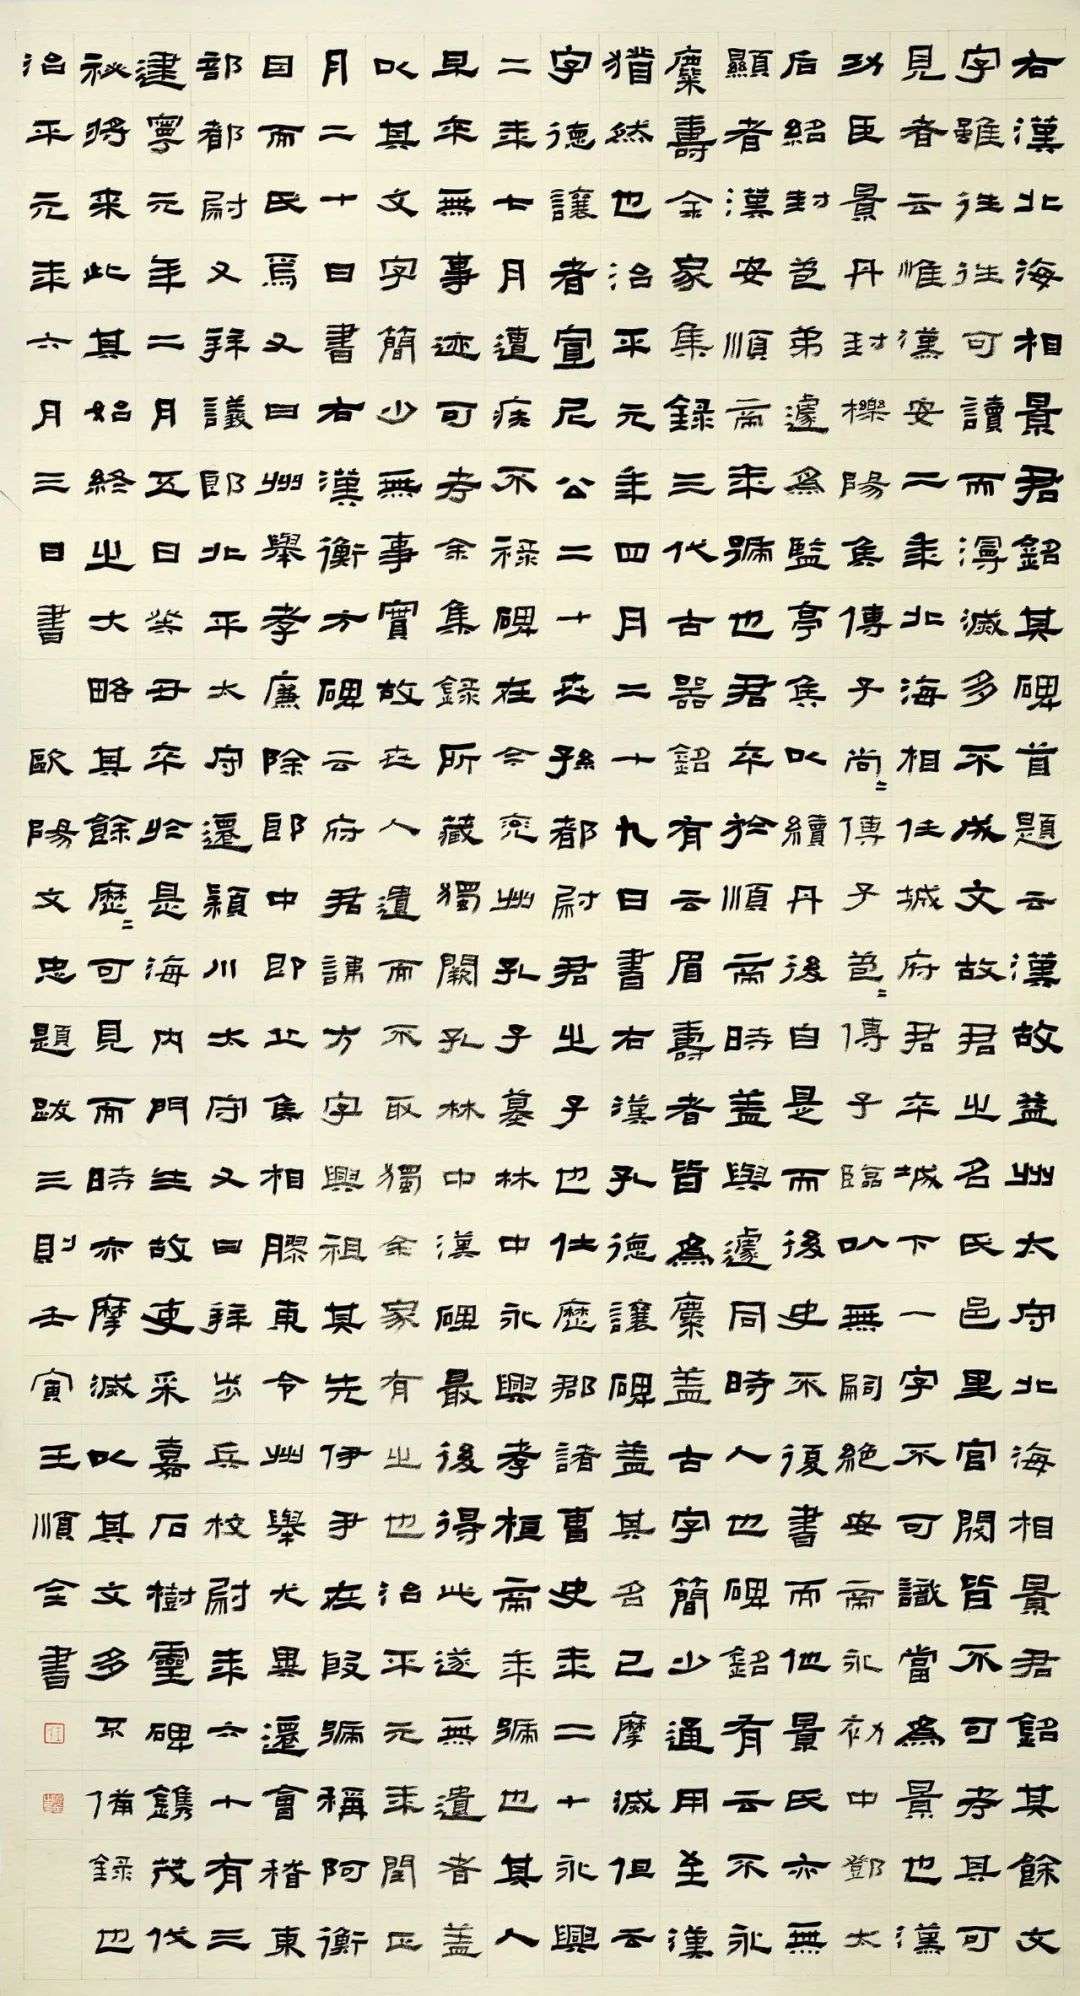 右漢北海相景君銘其碑首題云漢故益州太守北海相景君銘其餘文
字雖往往可讀而漫滅多不成文故君之名氏邑里官閥皆不可考其可
見者云惟漢安二年北海相任城府君卒城下一字不可識當為景也漢
功臣景丹封櫟陽侯傳子尚〻傳子苞〻傳子臨以無嗣絕安帝永初中鄧太
后紹封苞弟遽為監亭侯以續丹後自是而後史不復書而他景氏亦無
顯者漢安順帝年號也君卒於順帝時蓋與遽同時人也碑銘有云不永
麋壽余家集錄三代古器銘有云眉壽者皆為麋蓋古字簡少通用至漢
猶然也治平元年四月二十九日書右漢孔德讓碑蓋其名已摩滅但云
字德讓者宣尼公二十世孫都尉君之子也仕歷郡諸曹史年二十永興
二年七月遭疾不祿碑在今兗州孔子墓林中永興孝桓帝年號也其人
早卒無事迹可考余集錄所藏獨闕孔林中漢碑最後得此遂無遺者蓋
以其文字簡少無事實故世人遺而不取獨余家有之也治平元年閏五
月二十日書右漢衡方碑云府君諱方字興祖其先伊尹在殷號稱阿衡
因而氏焉又曰州舉孝廉除郎中即丘侯相膠東令州舉尤異遷會稽東
部都尉又拜議郎北平太守遷潁川太守又曰拜步兵校尉年六十有三
建寧元年二月五日癸丑卒於是海內門生故吏采嘉石樹靈碑鐫茂伐
祕將來此其始終之大略其餘歷〻可見而時亦摩滅以其文多不備錄也
治平元年六月三日書 歐陽文忠題跋三則壬寅王順全書